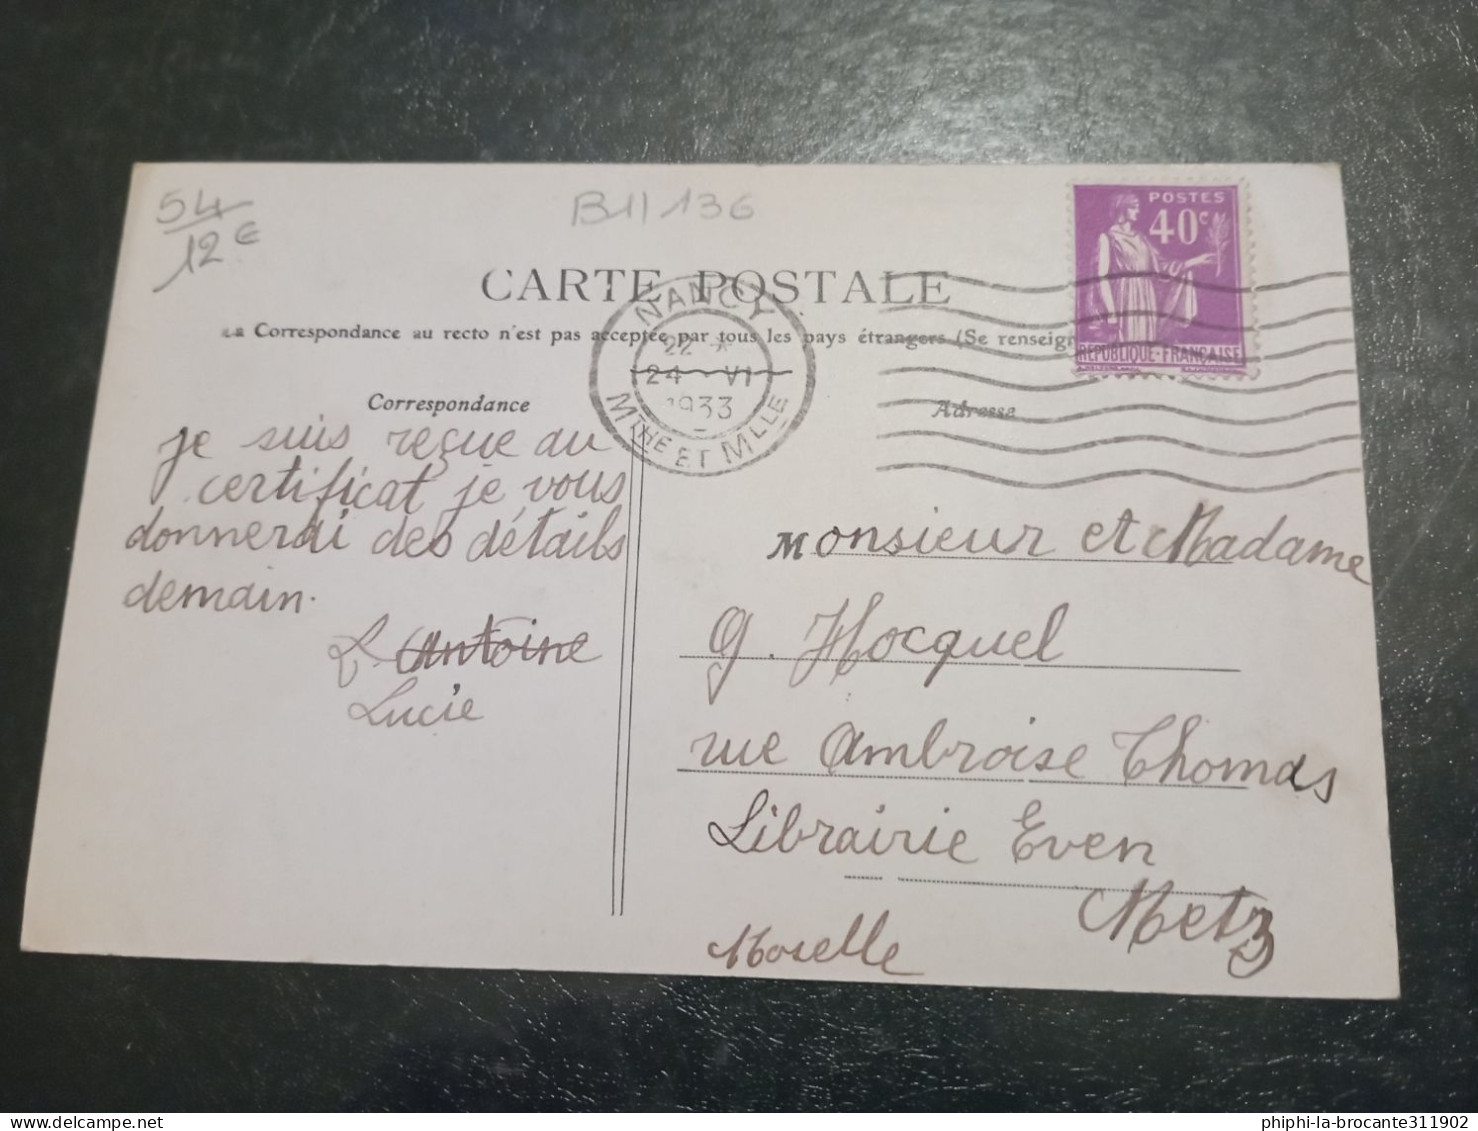 54
12€
B11136
POSTES
40c
RÉPUBLIQUE-FRANÇAISE
CARTE POSTALE
La Correspondance au recto n'est pas acceptée par tous les pays étrangers (Se renseign
NANCY
22 *
24 - VI
1933
MTHE ET MLLE
Correspondance
Adresse
je suis reçue au
certificat je vous
donnerai des détails
demain.
L. Antoine
Lucie
Monsieur et Madame
G. Hocquel
rue Ambroise Thomas
Librairie Even
Metz
Moselle
delcampe.net
phiphi-la-brocante311902